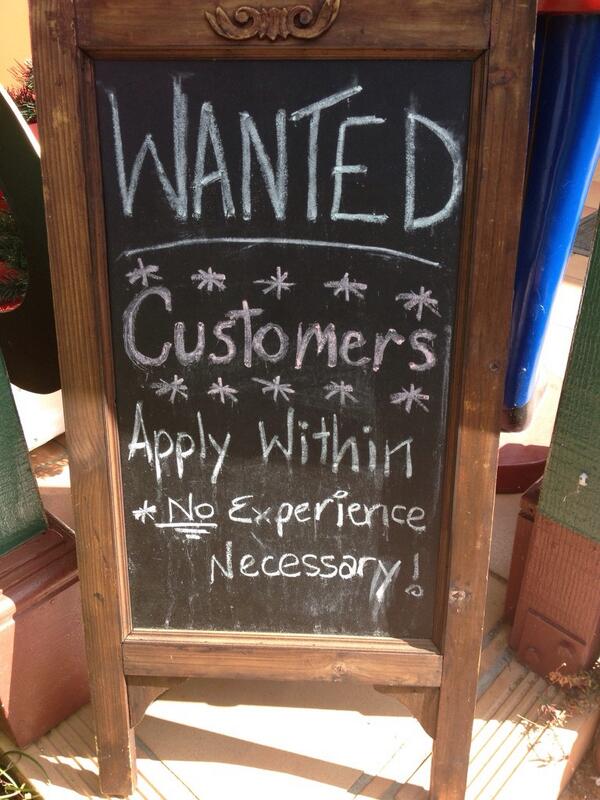 WANTED
* * * * *
Customers
* * * * *
Apply Within
* No Experience
Necessary!